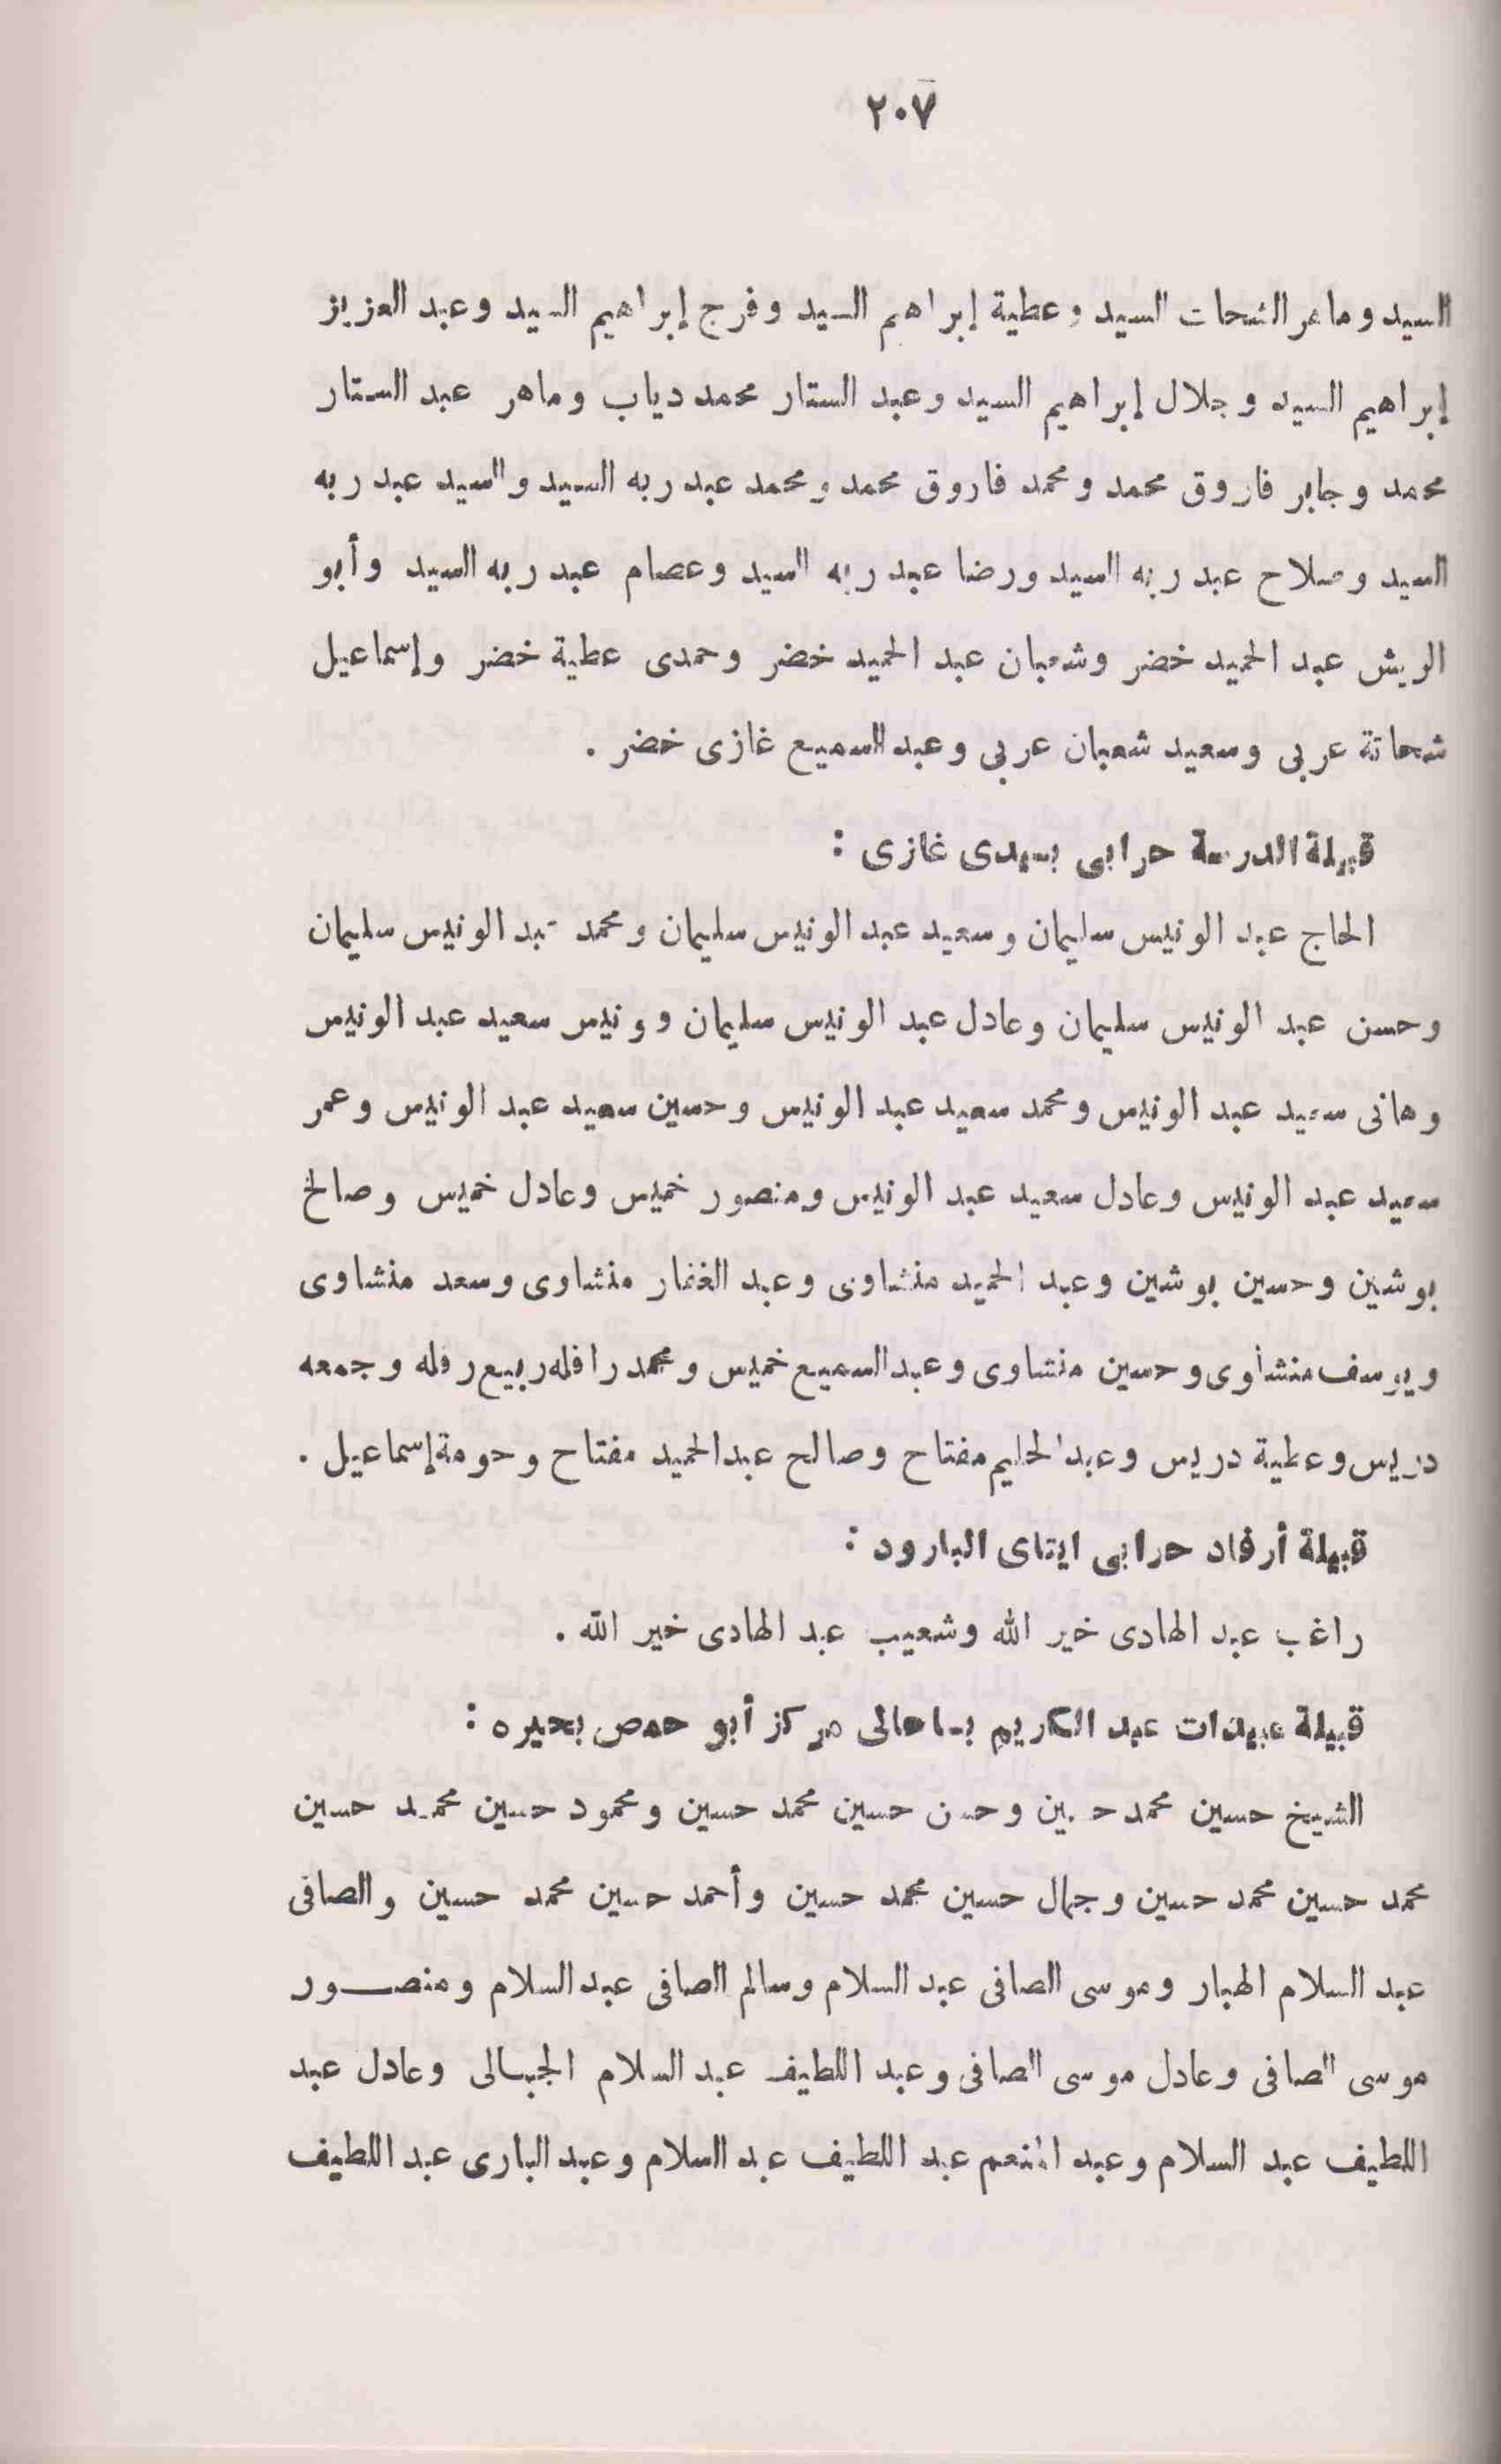 ٢٠٧
السيد وماهر الشحات السيد وعطية إبراهيم السيد وفرج إبراهيم السيد وعبد العزيز
إبراهيم السيد وجلال إبراهيم السيد وعبد الستار محمد دياب وماهر عبد الستار
محمد وجابر فاروق محمد ومحمد فاروق محمد ومحمد عبد ربه السيد والسيد عبد ربه
السيد وصلاح عبد ربه السيد ورضا عبد ربه السيد وعصام عبد ربه السيد وأبو
الريش عبد الحميد خضر وشعبان عبد الحميد خضر وحمدى عطية خضر وإسماعيل
شحاتة عربى وسعيد شعبان عربى وعبد السميع غازى خضر .
قبيلة الدرسة حرابى بسيدى غازى :
الحاج عبد الونيس سليمان وسعيد عبد الونيس سليمان ومحمد عبد الونيس سليمان
وحسن عبد الونيس سليمان وعادل عبد الونيس سليمان وونيس سعيد عبد الونيس
وهانى سعيد عبد الونيس ومحمد سعيد عبد الونيس وحسين سعيد عبد الونيس وعمر
سعيد عبد الونيس وعادل سعيد عبد الونيس ومنصور خميس وعادل خميس وصالح
بوشين وحسين بوشين وعبد الحميد منشاوى وعبد الغفار منشاوى وسعد منشاوى
ويوسف منشاوى وحسين منشاوى وعبد السميع خميس ومحمد رافله ربيع رفله وجمعه
دريس وعطية دريس وعبد الحليم مفتاح وصالح عبد الحميد مفتاح وحومة إسماعيل .
قبيلة أرفاد حرابى ايتاى البارود :
راغب عبد الهادى خير الله وشعيب عبد الهادى خير الله .
قبيلة عبيدات عبد الكريم بساحالى مركز أبو حمص بحيره :
الشيخ حسين محمد حسين وحسن حسين محمد حسين ومحمود حسين محمد حسين
محمد حسين محمد حسين وجمال حسين محمد حسين وأحمد حسين محمد حسين والصافى
عبد السلام الهبار وموسى الصافى عبد السلام وسالم الصافى عبد السلام ومنصــور
موسى الصافى وعادل موسى الصافى وعبد اللطيف عبد السلام الجبالى وعادل عبد
اللطيف عبد السلام وعبد المنعم عبد اللطيف عبد السلام وعبد البارى عبد اللطيف